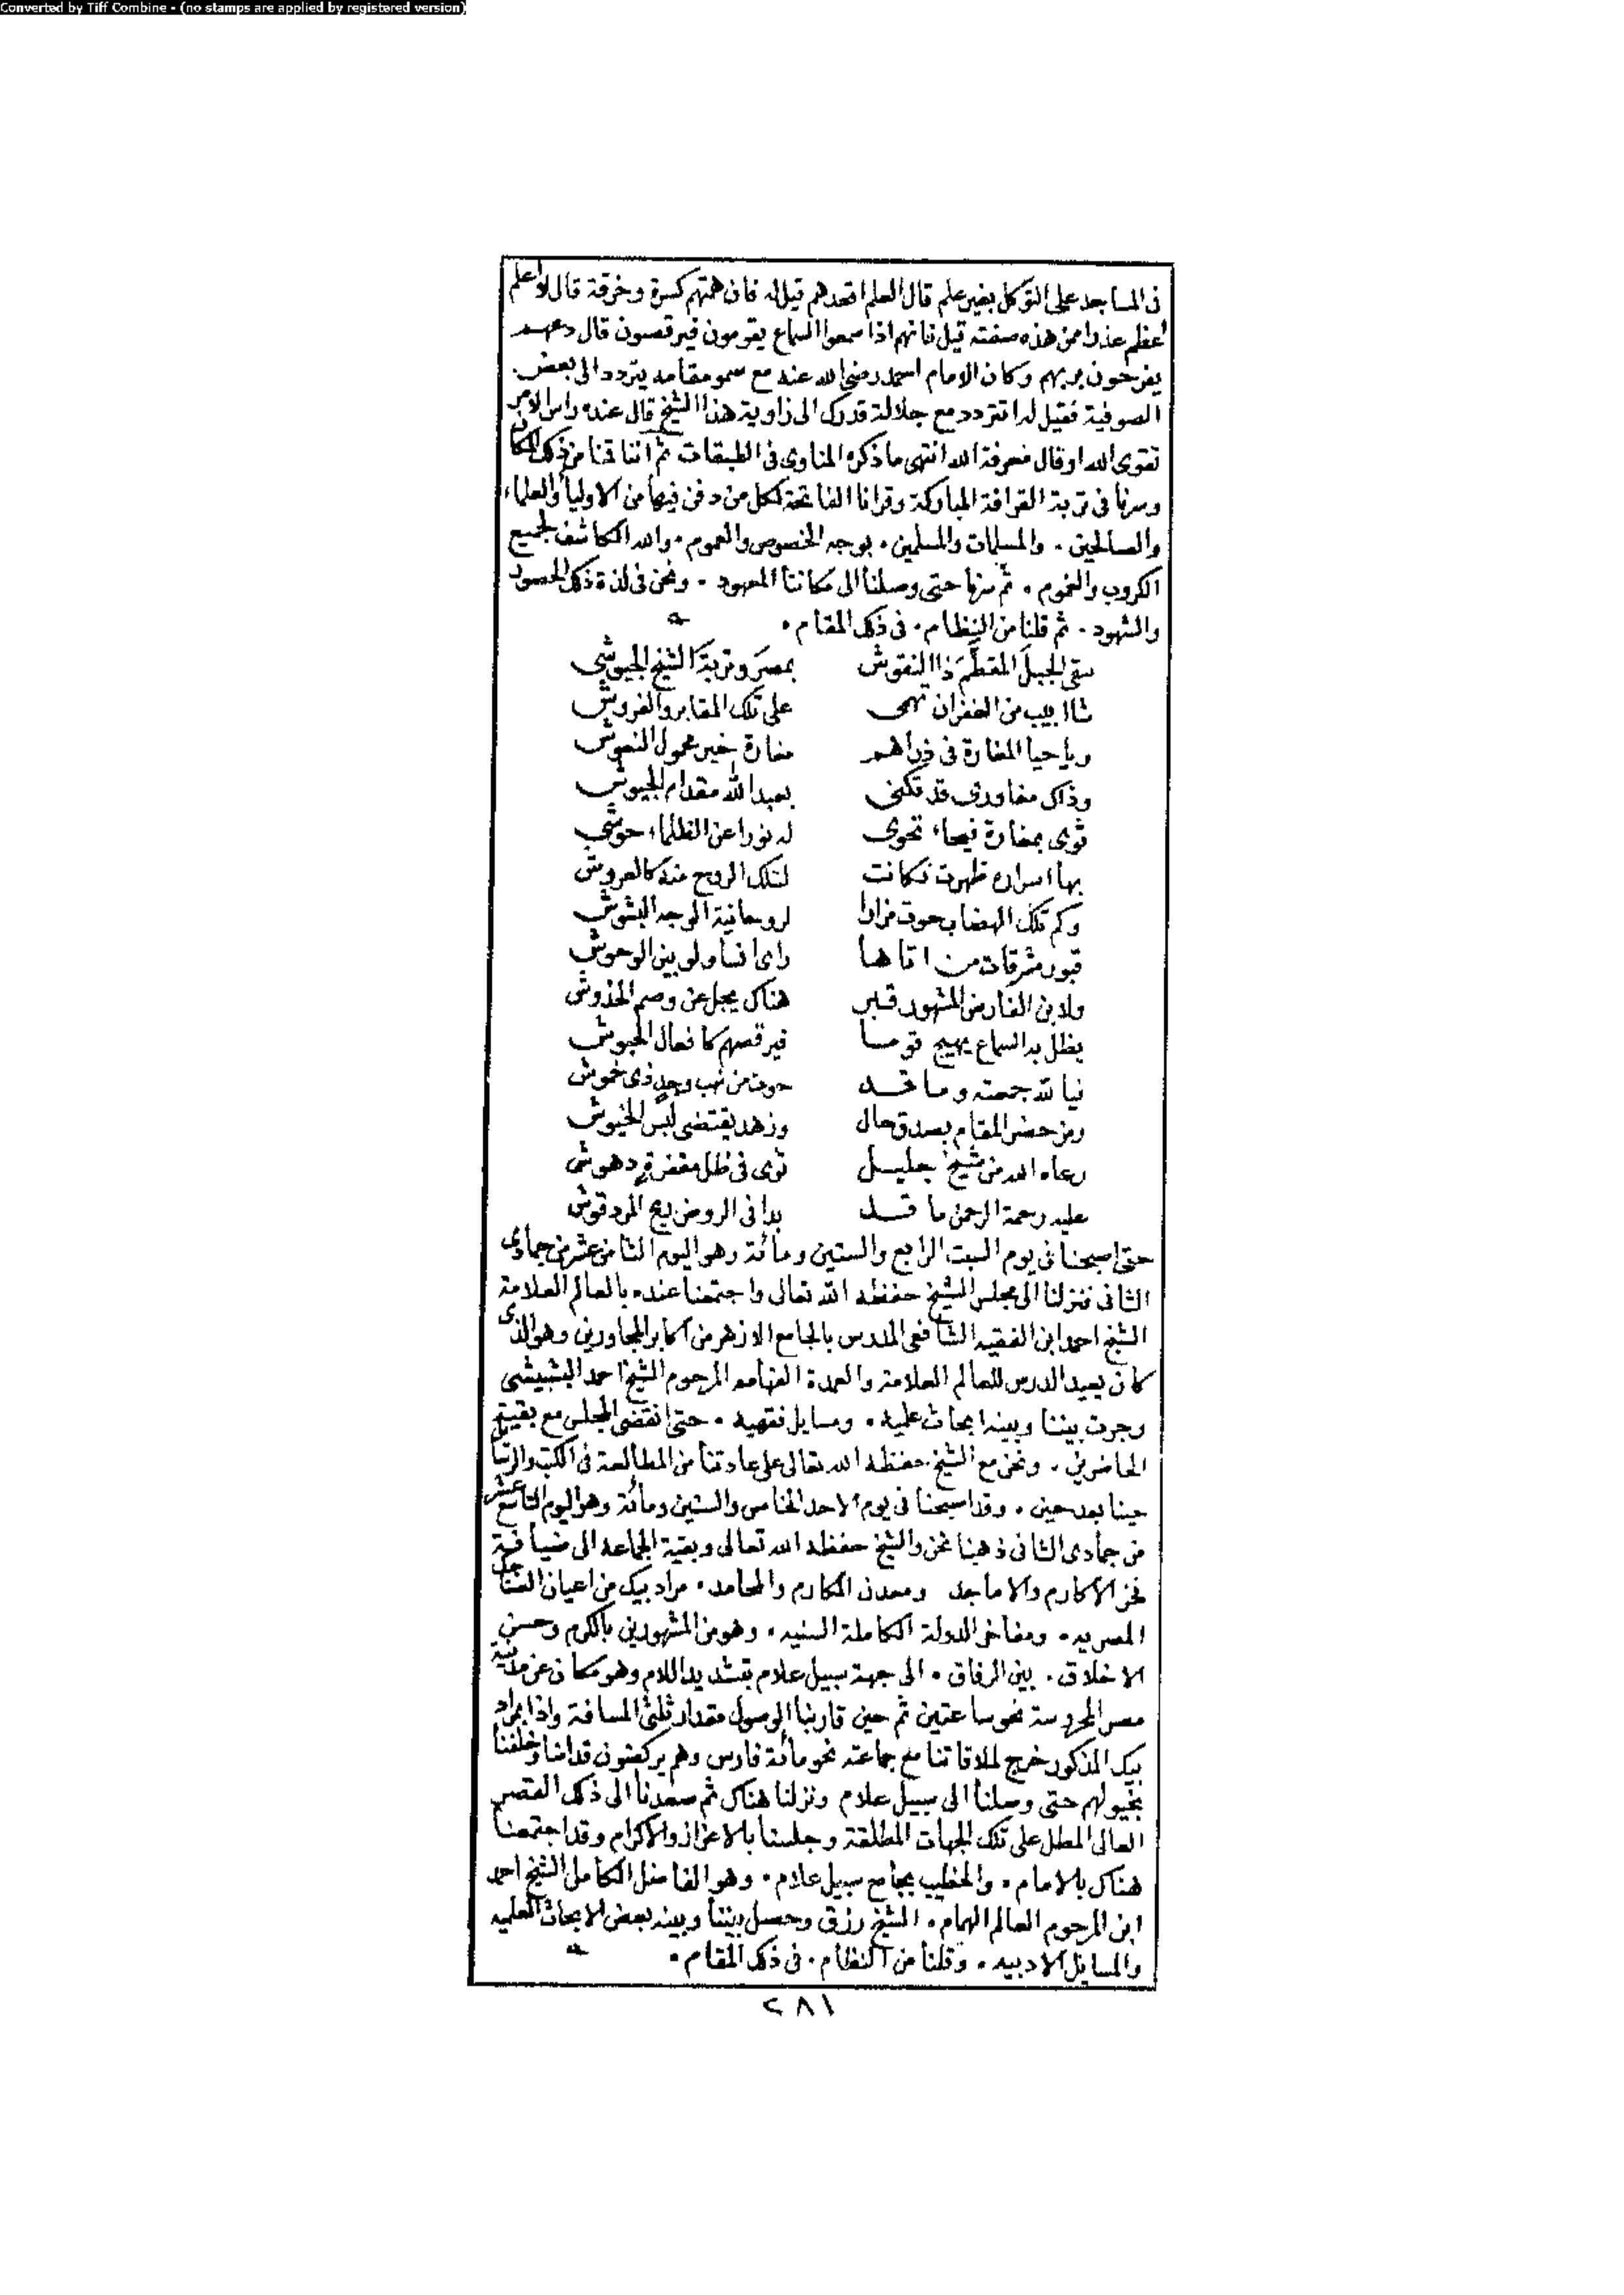 Converted by Tiff Combine - (no stamps are applied by registered version)
فى المساجد على التوكل بغير علم قال العلم اقعدهم قيل له فان همتهم كسرة وخرقة قال لا اعلم
اعظم عذرا ممن هذه صفته قيل فانهم اذا سمعوا السماع يقومون فيرقصون قال دعهم
يفرحون بربهم وكان الامام احمد رضى الله عنه مع سمو مقامه يتردد الى بعض
الصوفية فقيل له اتتردد مع جلالة قدرك الى زاوية هذا الشيخ قال عنده راس الامر
تقوى الله اوقال معرفة الله انتهى ما ذكره المناوى فى الطبقات ثم اننا قمنا من ذلك المكان
وسرنا فى تربة القرافة المباركة وقرانا الفاتحة لكل من دفن فيها من الاولياء والعلماء
والصالحين . والمسلمات والمسلمين . بوجه الخصوص والعموم . والله الكاشف لجميع
الكروب والغموم . ثم سرنا حتى وصلنا الى مكاننا المعهود . ونحن فى لذة ذلك
والشهود . ثم قلنا من النظام . فى ذلك المقام .
سقى الجبل المقطم ذا النقوش بمصر وتربة الشيخ الجيوشي
شاابيب من الغفران تهمى على تلك المقابر والفروش
وياحيا المغارة فى ذراهم مغارة خير محمول النعوش
وذاك مغاورى قد تكنى بعبد الله مقدام الجيوش
ثوى بمغارة فيحاء تحوى له نورا عن الظلماء حوشي
بها اسراره ظهرت فكانت لتلك الروح منه كالعروش
وكم تلك الهضاب حوت مزارا لروحانية الوجه البشوش
قبور مشرقات من اتاها راى انسا ولو بين الوحوش
ولابن الفارض المشهور قبر هناك يجل عن وصم الخدوش
يظل به السماع يهيج قوما فيرقصهم كافعال
فيا لله جمعته وما قد حوت من نهب وجد ذى خموش
ومن حضر المقام بصدق حال وزهد يقتضى لبس الخيوش
رعاه الله من شيخ جليل ثوى فى ظل مغفرة دهوش
عليه رحمة الرحمن ما قد بدا فى الروض ريح المردقوش
حتى اصبحنا فى يوم السبت الرابع والستين ومائة وهو اليوم الثامن عشر من جمادى
الثانى فنزلنا الى مجلس الشيخ حفظه الله تعالى واجتمعنا عنده بالعالم العلامة
الشيخ احمد ابن الفقيه الشافعى المدرس بالجامع الازهر من اكابر المجاورين وهو الذى
كان يعيد الدرس للعالم العلامة والعمدة الفهامه المرحوم الشيخ احمد البشبيشى
وجرت بيننا وبينه ابحاث علميه . ومسايل فقهيه . حتى انقضى المجلس مع بقية
الحاضرين . ونحن مع الشيخ حفظه الله تعالى على عادتنا من المطالعة فى الكتب
حينا بعد حين . وقد اصبحنا فى يوم الاحد الخامس والستين ومائة وهو اليوم التاسع عشر
من جمادى الثانى ذهبنا نحن والشيخ حفظه الله تعالى وبقية الجماعه الى ضيافة
فخر الاكارم والاماجد ومعدن المكارم والمحامد . مراد بيك من اعيان
المصريه . ومفاخر الدولة الكاملة السنيه . وهو من المشهورين بالكرم وحسن
الاخلاق . بين الرفاق . الى جهة سبيل علام بتشديد اللام وهو مكان عن مدينة
مصر المحروسة نحو ساعتين ثم حين قاربنا الوصول مقدار ثلثى المسافة واذا بمراد
بيك المذكور خرج لملاقاتنا مع جماعته نحو مائة فارس وهم يركضون قدامنا وخلفنا
بخيولهم حتى وصلنا الى سبيل علام ونزلنا هناك ثم صعدنا الى ذلك القصر
العالى المطل على تلك الجهات المطلقة وجلسنا بالاعزاز والاكرام وقد اجتمعنا
هناك بالامام . والخطيب بجامع سبيل علام . وهو الفاضل الكامل الشيخ احمد
ابن المرحوم العالم الهمام . الشيخ رزق وحصل بيننا وبينه بعض الابحاث العلميه
والمسايل الادبيه . وقلنا من النظام . فى ذلك المقام .
٢٨١